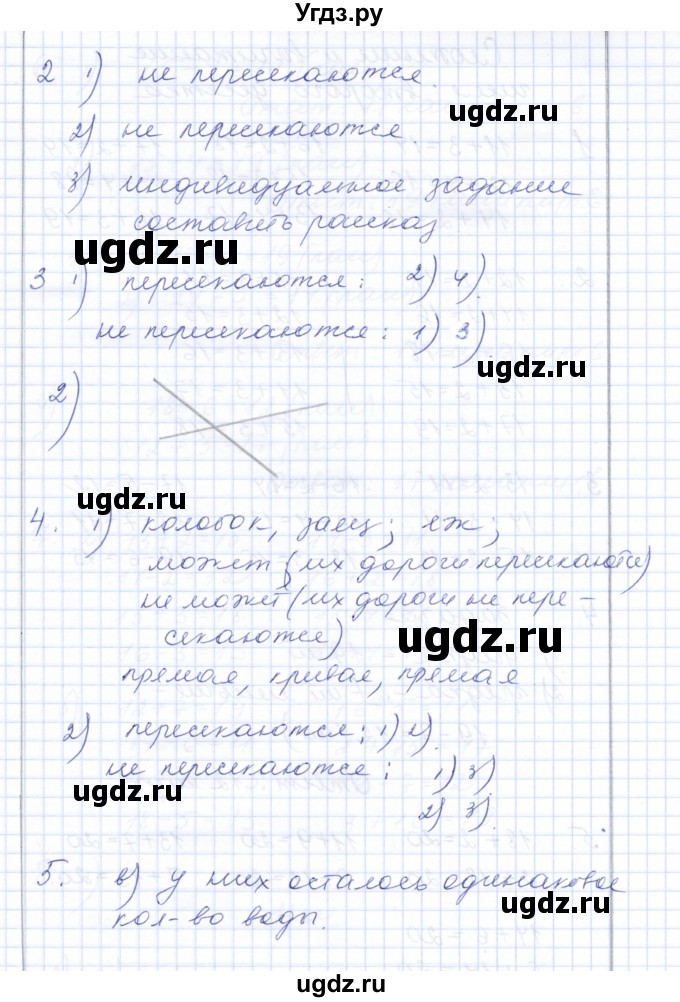 Угдз.ру
2 1) не пересекаются.
ugdz.ru
2) не пересекаются.
3) индивидуальное задание
составить рассказ
ugdz.ru
3 1) пересекаются: 2) 4).
не пересекаются: 1) 3).
ugdz.ru
2)
ugdz.ru
4. 1) колобок, заяц; ёж;
может (их дороги пересекаются)
не может (их дороги не пере-
секаются)
ugdz.ru
прямая, кривая, прямая
2) пересекаются: 1) 2).
не пересекаются: 1) 3).
ugdz.ru
2) 3).
5. в) у них осталось одинаковое
ugdz.ru
кол-во воды.
Угдз.ру